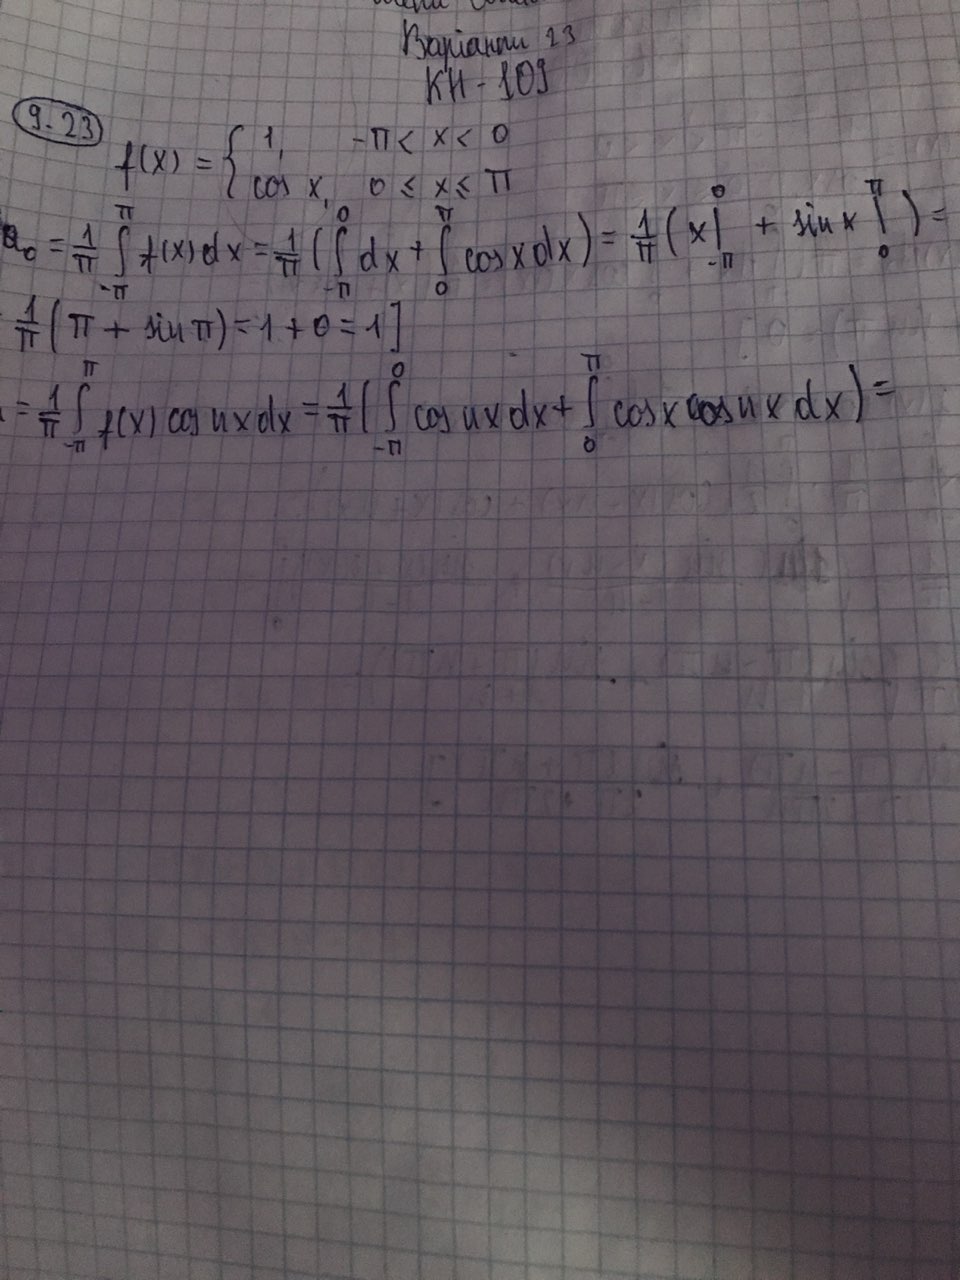 Варіант 23
КН-109
9.23
f(x) = { 1, -π < x < 0
cos x, 0 ≤ x ≤ π
a₀ = 1/π ∫_{-π}^{π} f(x)dx = 1/π (∫_{-π}^{0} dx + ∫_{0}^{π} cosxdx) = 1/π (x|_{-π}^{0} + sinx|_{0}^{π}) =
1/π (π + sinπ) = 1 + 0 = 1]
= 1/π ∫_{-π}^{π} f(x) cos nxdx = 1/π (∫_{-π}^{0} cosnxdx + ∫_{0}^{π} cosx cosnxdx) =